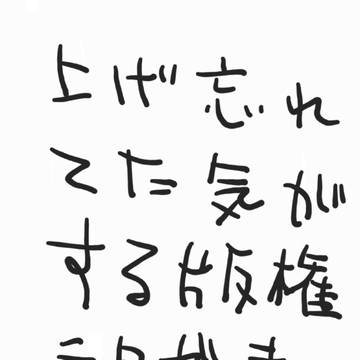 上げ忘れ
てた気が
する版権